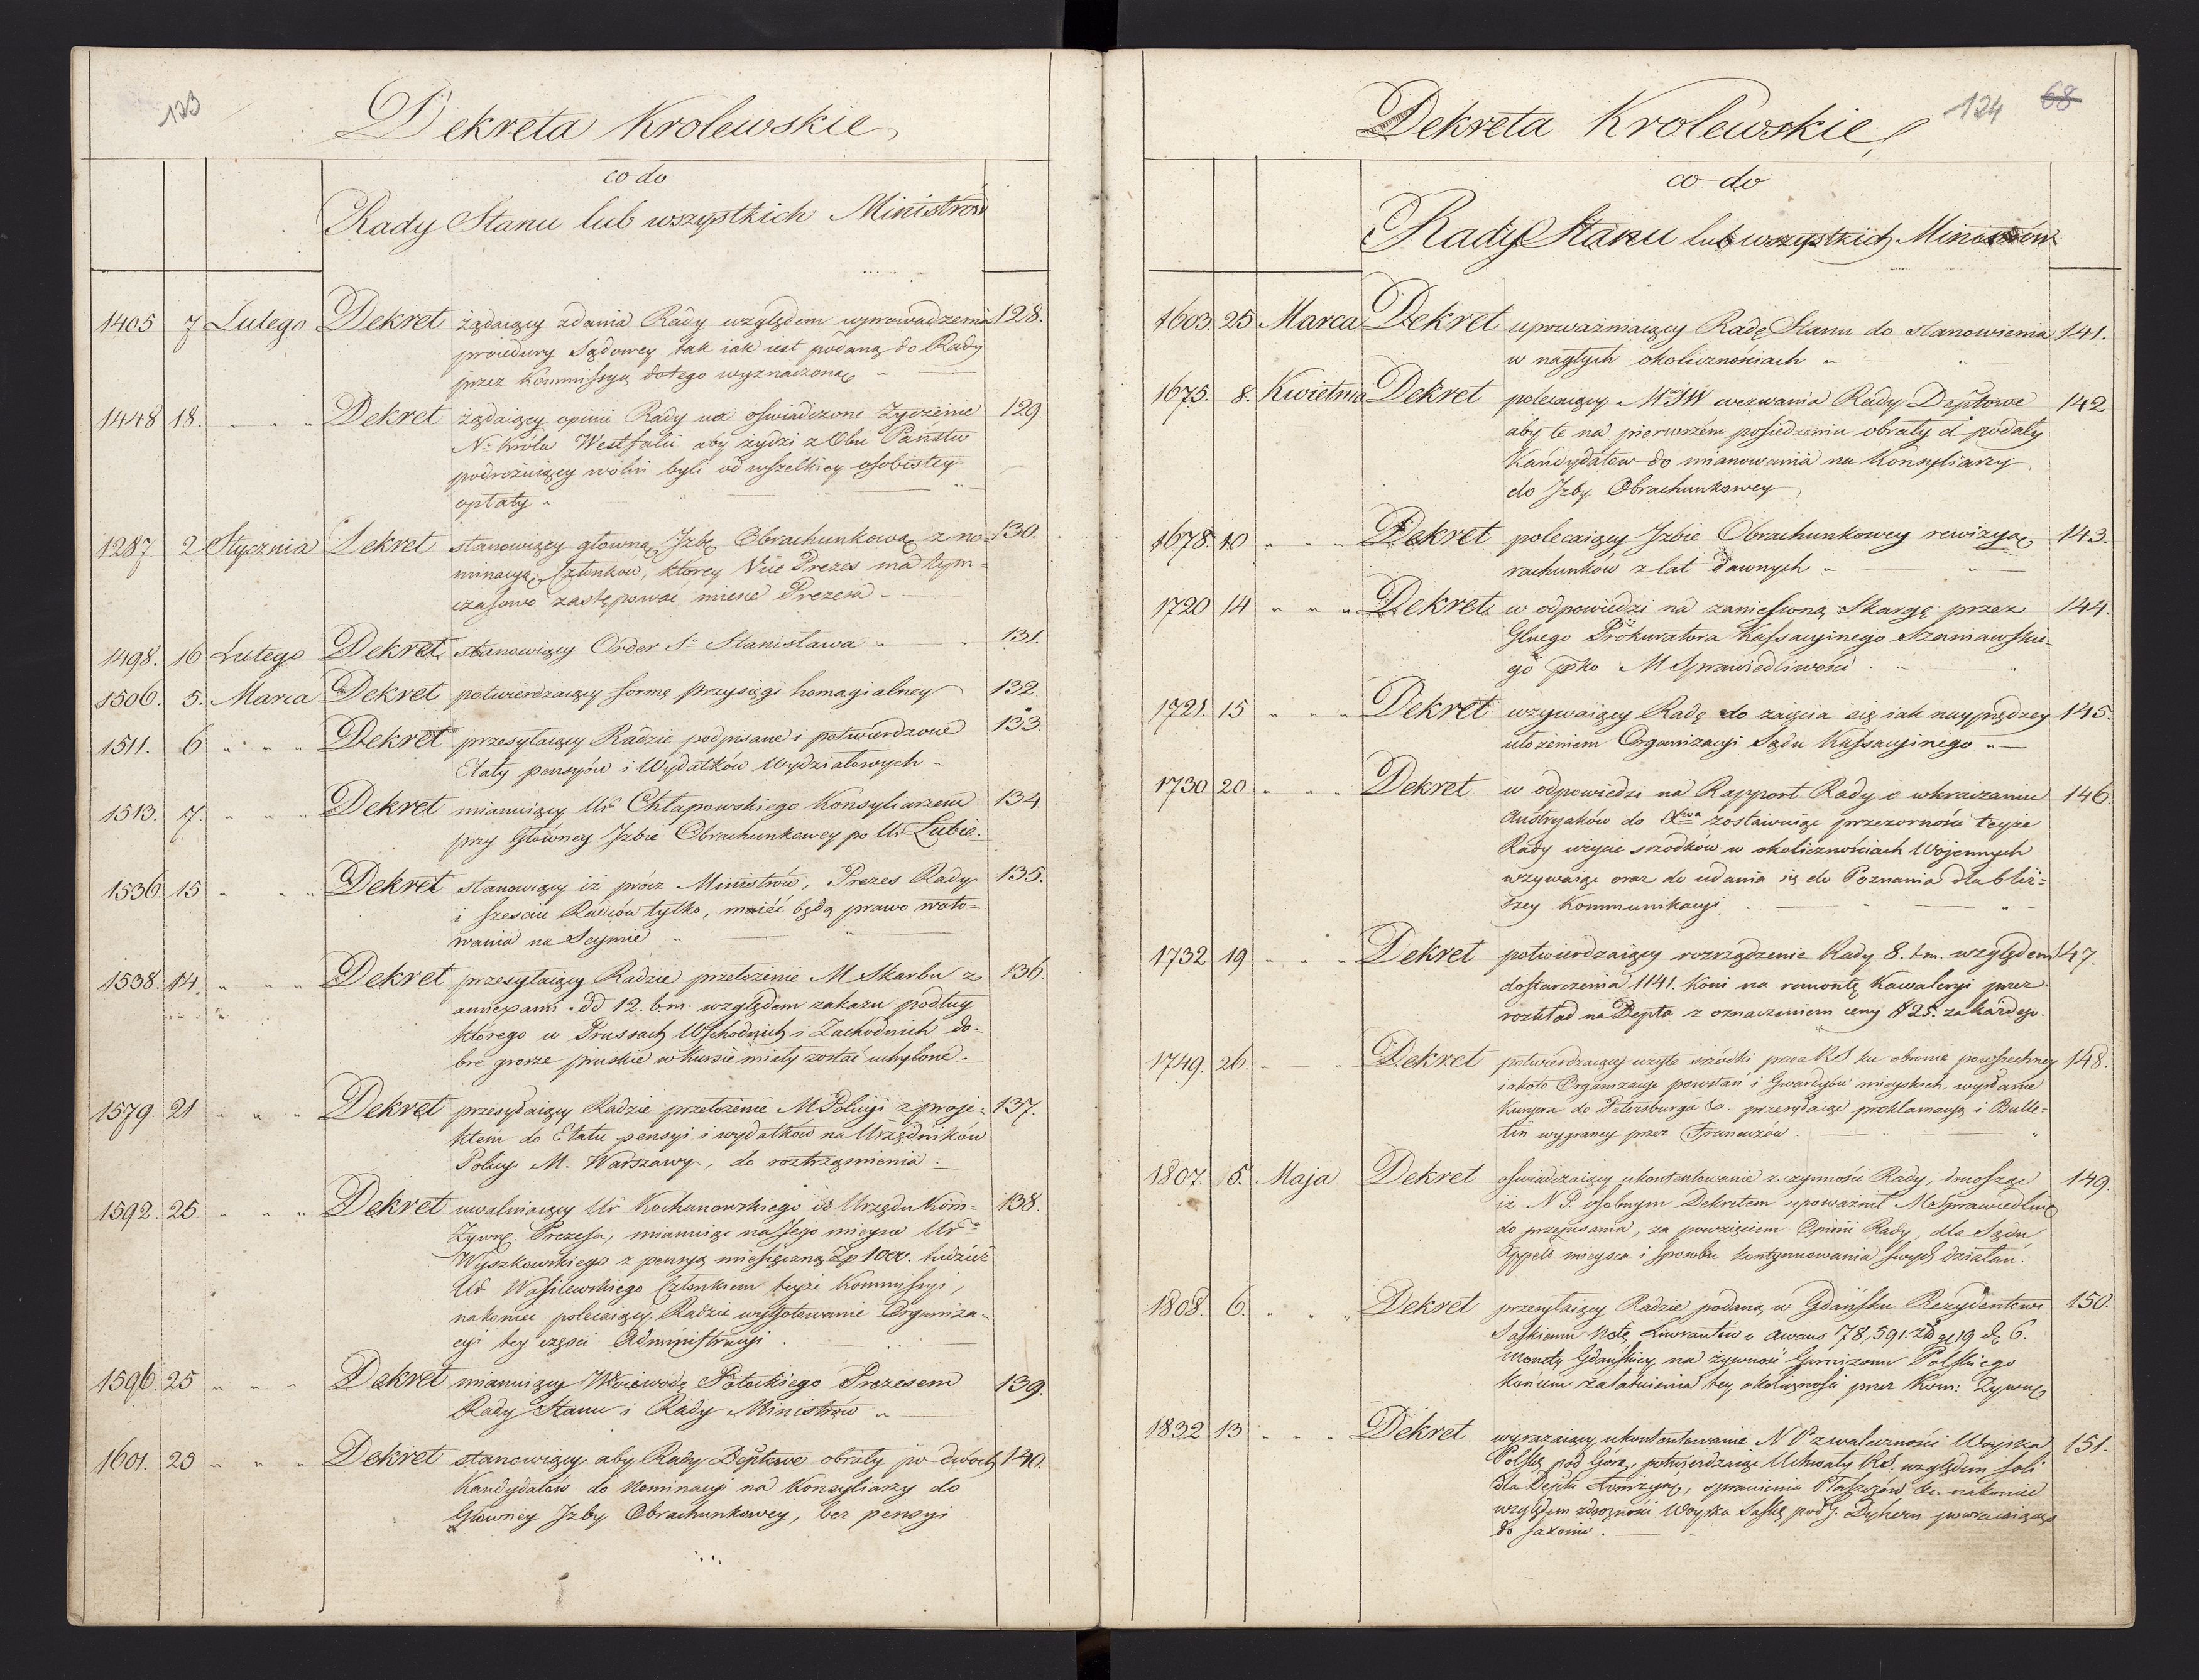 133
Dekreta Krolewskie
co do
Rady Stanu lub wszystkich Ministrów
1405 7 Lutego Dekret żądaiący zdania Rady względem wprowadzenia 128.
procedury Sądowey tak iak iest podaną do Rady
przez Kommissyą dotego wyznaczoną "
1448 18. " " Dekret żądaiący opinii Rady na oświadczone Zyczenie 129
N. Króla Westfalii aby żydzi z Obu Państw
podrożuiący wolni byli od wszelkiey osobistey
opłaty "
1287 2 Stycznia Dekret stanowiący głowną Jzbę Obrachunkową z no= 130.
minacyą Członkow, ktorey Vice Prezes ma tym=
czasowo zastępować mieysce Prezesa
1498. 16 Lutego Dekret stanowiący Order S⁰ Stanisława " 131.
1506. 5. Marca Dekret potwierdzaiący formę przysięgi homagialney 132.
1511. 6 " " " Dekret przesyłaiący Radzie podpisane i potwierdzone 133.
Etaty pensyów i Wydatków Wydziałowych "
1513. 7. " " " Dekret mianuiący Ur Chłapowskiego Konsyliarzem 134
przy Główney Jzbie Obrachunkowey po Ur Lubie.
1536. 15 " " " Dekret stanowiący iż prócz Ministrów, Prezes Rady 135.
i sześciu Radców tylko, mieć będą prawo woto=
wania na Seymie "
1538. 14. " " " Dekret przesyłaiący Radzie przełożenie M Skarbu z 136.
annexami dd 12. b.m. względem zakazu podług
którego w Prussach Wschodnich i Zachodnich do=
bre grosze pruskie w kursie miały zostać uchylone.
1579. 21 " " " Dekret przesyłaiący Radzie przełożenie M Policyi z proje= 137.
ktem do Etatu pensyi i wydatków na Urzędników
Policyi M. Warszawy, do roztrząśnienia
1592. 25 " " " Dekret uwalniaiący Ur Kochanowskiego od Urzędu Kom= 138.
Żywnę. Prezesa, mianuiąc na Jego mieysce Ur
Wyszkowskiego z pensyą miesięczną Zp 1000. tudzież
Ur Wasilewskiego Członkiem teyże Kommissyi,
nakoniec polecaiący Radzie wygotowanie Organiza=
cyi tey części Administracyi
1596. 25 " " " Dekret mianuiący Woiewodę Potockiego Prezesem 139.
Rady Stanu i Rady Ministrów "
1601. 23 " " " Dekret stanowiący aby Rady Depttowe obrały po dwóch 140.
Kandydatów do Nominacyi na Konsyliarzy do
Główney Jzby Obrachunkowey, bez pensyi
124 68
Dekreta Krolewskie
co do
Rady Stanu lub wszystkich Ministrów
1603. 25 Marca Dekret upoważniaiący Radę Stanu do stanowienia 141.
w nagłych okolicznościach "
1675. 8. Kwietnia Dekret polecaiący MSW wezwania Rady Depttowe 142
aby te na pierwszém posiedzeniu obrały i podały
Kandydatow do mianowania na Konsyliarzy
do Jzby Obrachunkowey
1678. 10 " " " Dekret polecaiący Jzbie Obrachunkowey rewizyą 143.
rachunków z lat dawnych "
1720 14 " " " Dekret w odpowiedzi na zaniesioną Skargę przez 144.
Glnego Prokuratora Kassacyinego Szaniawskie=
go ppko M Sprawiedliwości
1721. 15 " " " Dekret wzywaiący Radę do zaięcia się iak nayprędzey 145.
ułożeniem Organizacyi Sądu Kassacyinego "
1730 20 " " " Dekret w odpowiedzi na Rapport Rady o wkraczaniu 146.
Austryaków do Xtwa zostawuiąc przezorności teyże
Rady użycie srzodków w okolicznościach Wojennych
wzywaiąc oraz do udania się do Poznania dla bliż=
szey Kommunikacyi
1732 19 " " " Dekret potwierdzaiący rozrządzenie Rady 8. t.m. względem 147.
dostarczenia 1141. Koni na remontę Kawaleryi przez
rozkład na Depta z oznaczeniem ceny # 25. za każdego.
1749. 26. Dekret potwierdzaiący użyte srzódki przez RS. ku obronie powszechney 148.
iakoto Organizacye powstań i Gwardyów mieyskich, wysłanie
Kuryera do Petersburga &. przesyłaiąc proklamacyą i Bulle=
tin wygraney przez Francuzów.
1807. 5. Maja Dekret oświadczaiący ukontentowanie z czynności Rady, donosząc 149.
iż N P. osobnym Dekretem upoważnił M Sprawiedliwo
do przepisania, za powzięciem Opinii Rady, dla Sądu
Appell mieysca i sposobu kontynuowania swych działań.
1808. 6. " " " Dekret przesyłaiący Radzie podaną w Gdańsku Rezydentowi 150.
Saskiemu Notę Liwrantów o awans 78,591. zł gr 19 d 6.
monety Gdańskiey na żywność Garnizonu Polskiego
końcem załatwienia tey okoliczności przez Kom: Żywną
1832 13 " " " Dekret wyrażaiący ukontentowanie N P. z waleczności Woyska 151.
Polskę. pod Górą, potwierdzaiąc Uchwały RS. względem soli
dla Depttu Łomżyń, sprawienia Płaszczów &c. nakoniec
względem żywności Woyska Saskę pod G. Dyhern powracaiącego
do Saxonii.